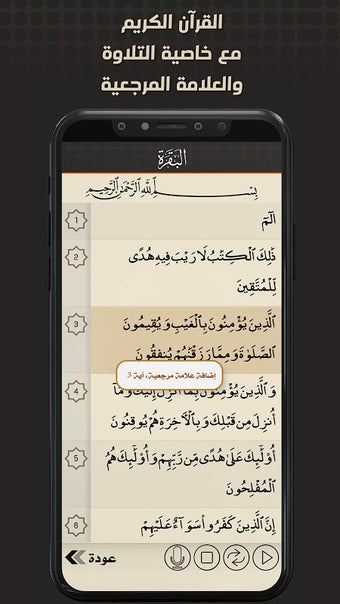 القرآن الكريم
مع خاصية التلاوة
والعلامة المرجعية
البقرة
بِسْمِ اللَّهِ الرَّحْمَٰنِ الرَّحِيمِ
1 الٓمٓ
2 ذَٰلِكَ ٱلْكِتَٰبُ لَا رَيْبَ فِيهِ هُدًى
لِّلْمُتَّقِينَ
3 ٱلَّذِينَ يُؤْمِنُونَ بِٱلْغَيْبِ وَيُقِيمُونَ
ٱلصَّلَوٰةَ وَمِمَّا رَزَقْنَٰهُمْ يُنفِقُونَ
إضافة علامة مرجعية، آية 3
4 وَٱلَّذِينَ يُؤْمِنُونَ بِمَآ أُنزِلَ إِلَيْكَ وَمَآ
أُنزِلَ مِن قَبْلِكَ وَبِٱلْءَاخِرَةِ هُمْ يُوقِنُونَ
5 أُو۟لَٰٓئِكَ عَلَىٰ هُدًى مِّن رَّبِّهِمْ وَأُو۟لَٰٓئِكَ هُمُ
ٱلْمُفْلِحُونَ
6 إِنَّ ٱلَّذِينَ كَفَرُوا۟ سَوَآءٌ عَلَيْهِمْ
عودة